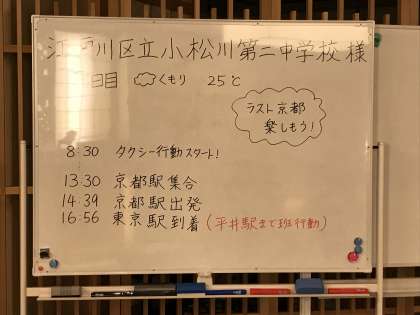 江戸川区立小松川第二中学校様
日目 くもり 25℃
ラスト京都
楽しもう!
8:30 タクシー行動スタート!
13:30 京都駅集合
14:39 京都駅出発
16:56 東京駅到着(平井駅まで班行動)